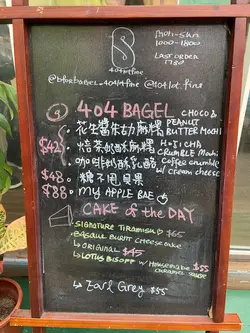 404ltfine
Mon-Sun
1000-1800
Last order
1730
@bforbagel_404ltfine @404lot.fine
404 BAGEL CHOCO &
花生醬朱古力麻糬 PEANUT BUTTER MOCHI
$42 焙茶奶酥麻糬 HOJICHA CRUMBLE Mochi
咖啡奶酥乳酪 Coffee crumble w/ cream cheese
$48 糖不甩貝果
$88 my APPLE BAE
CAKE of the DAY
SIGNATURE TIRAMISU $65
BASQUE BURNT CHEESECAKE
↳ ORIGINAL $45
↳ LOTUS BISOFF w/ HOMEMADE CARAMEL SAUCE $55
↳ Earl Grey $55